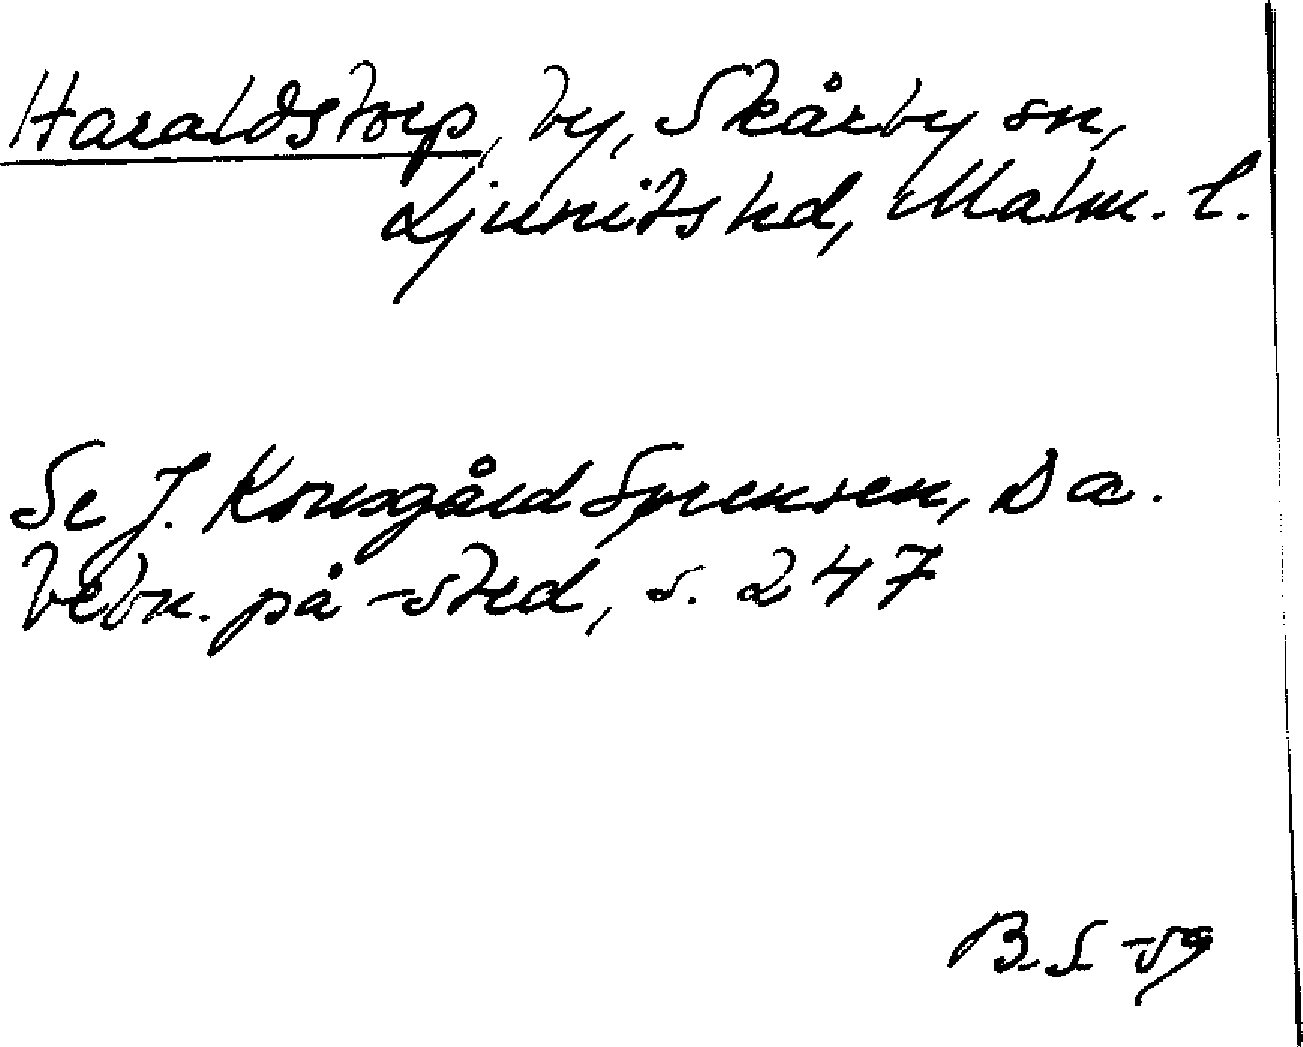 Haraldstorp, by, Skårby sn,
Ljunits hd, Malm. l.
Se J. Kousgård Sørensen, Da.
bebn. på -sted, s. 247
B.S -59